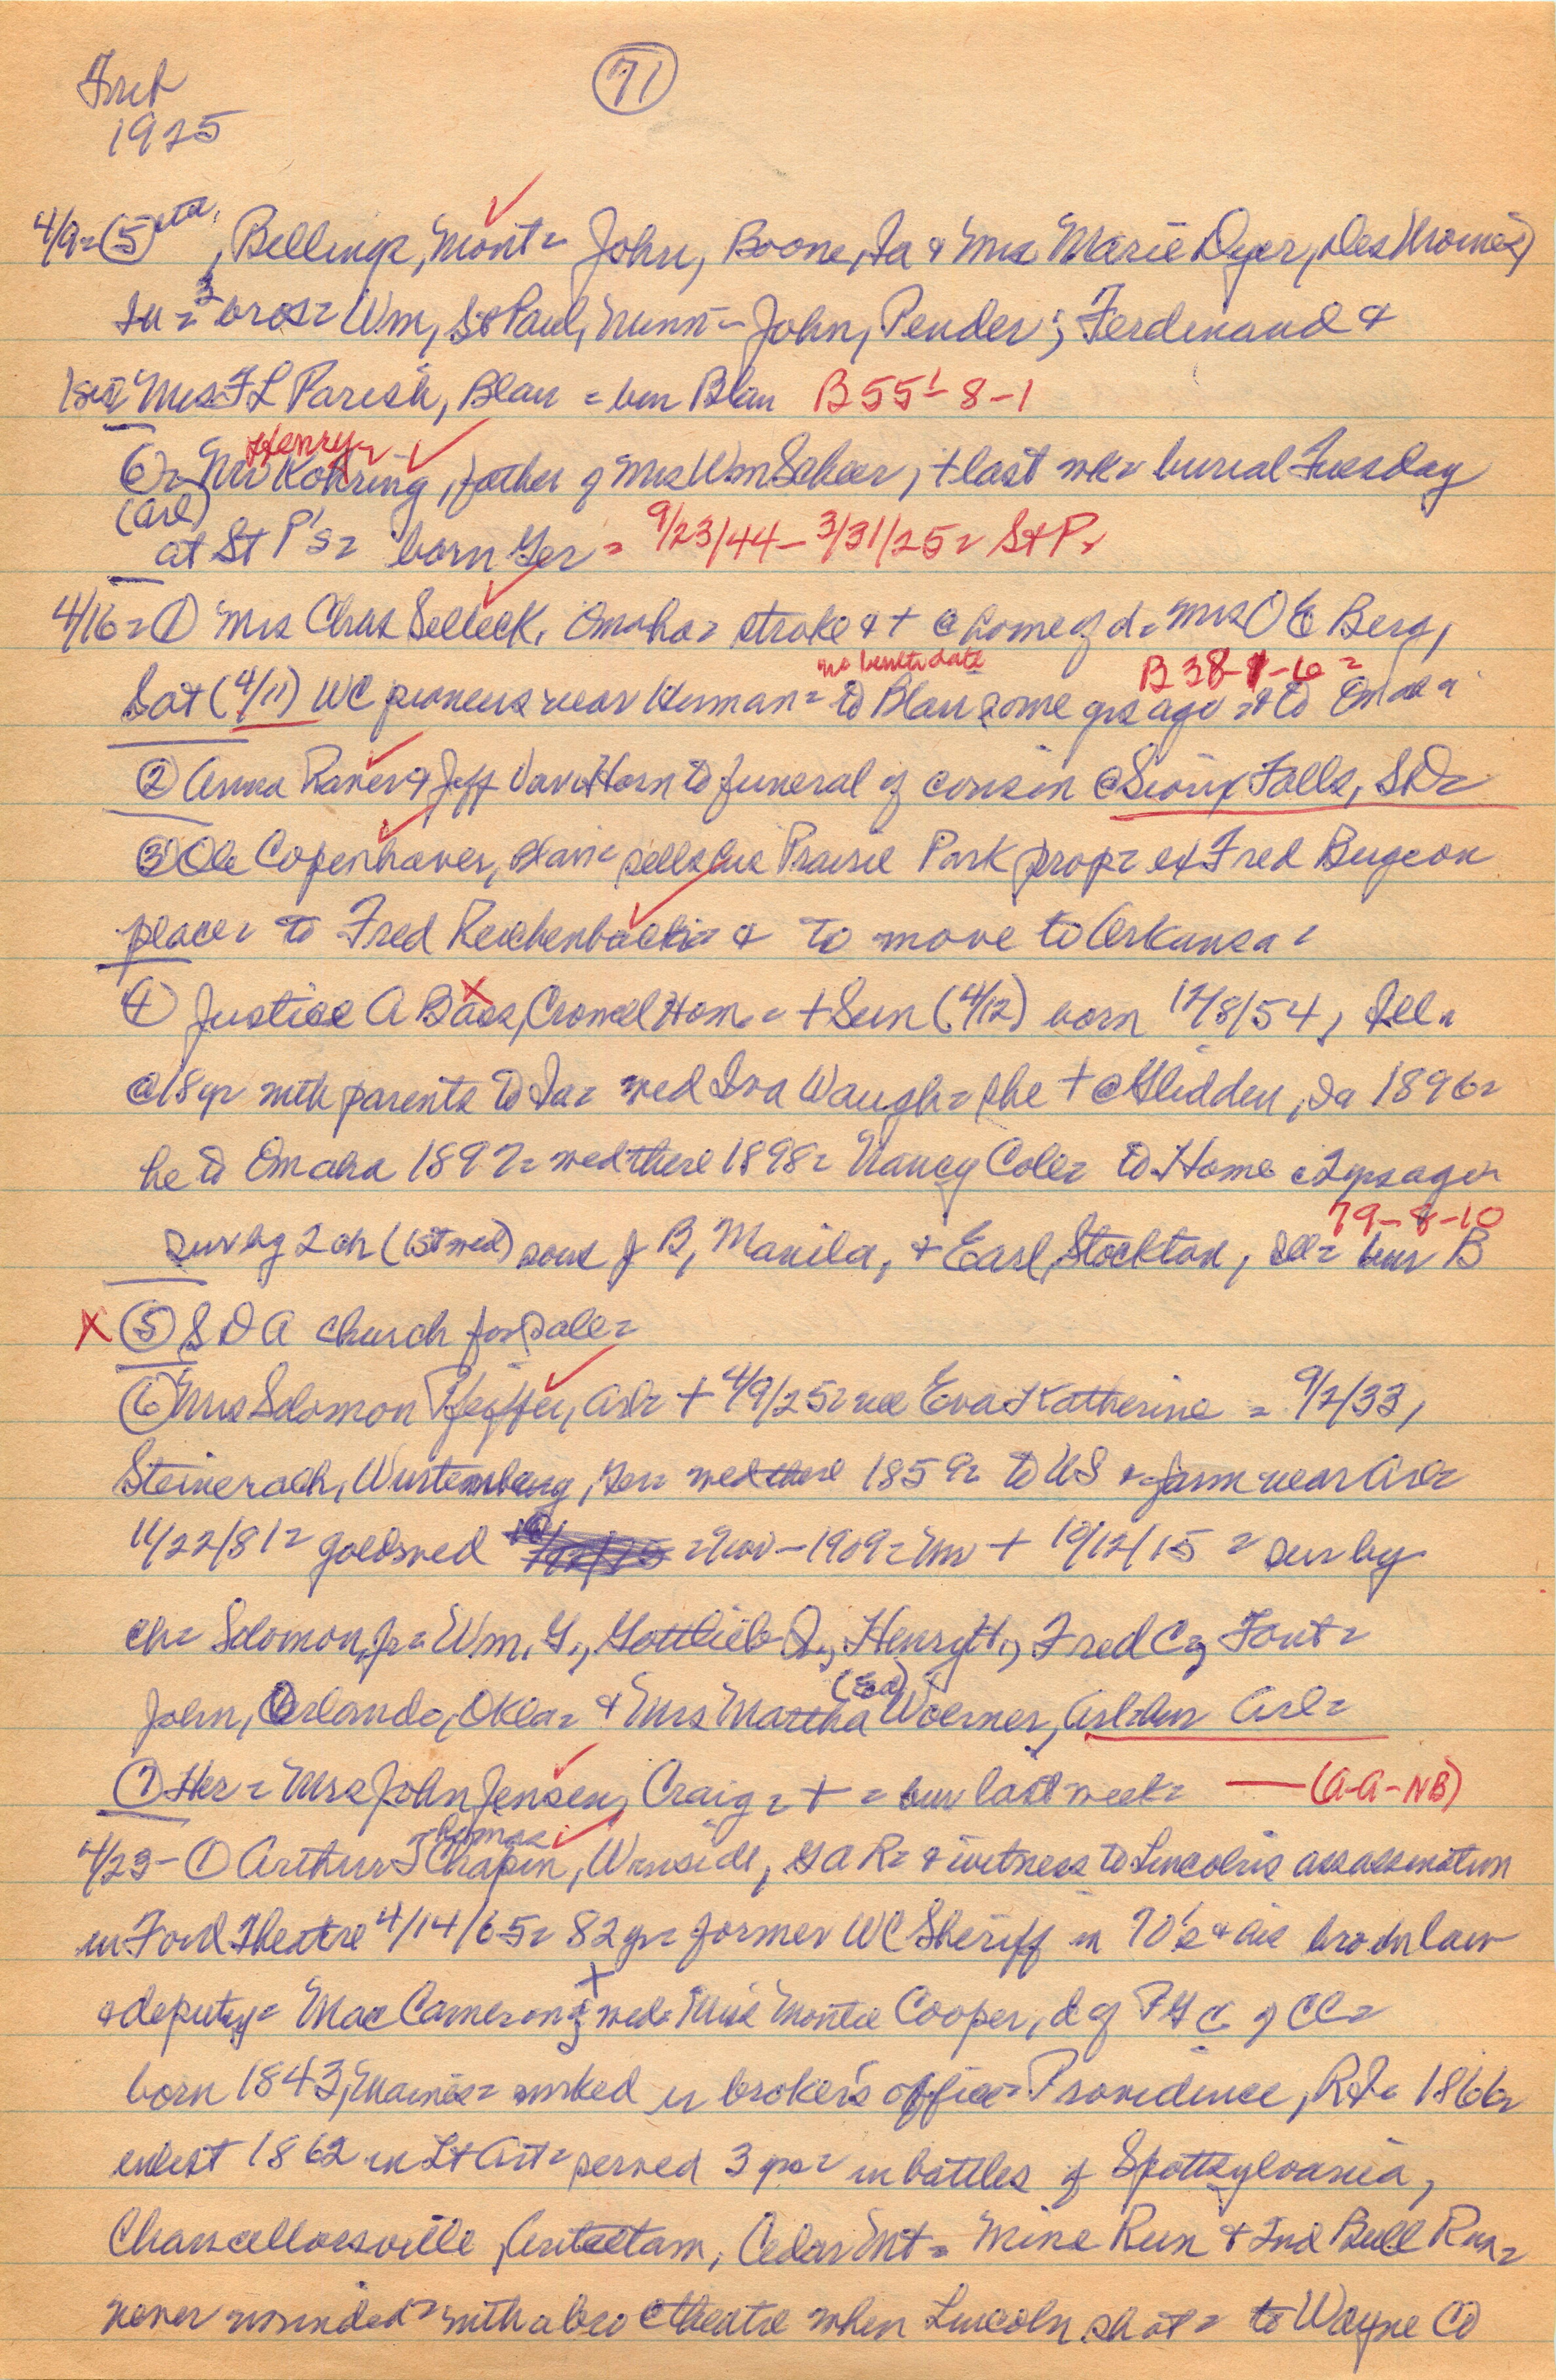 71
1925
4/9 = (5) , Billings, Mont = John, Boone, Ia & Mrs Marie Dyer, Des Moines,
Ia = 3 bros = Wm, St Paul, Minn - John, Pender; Ferdinand &
1 sis = Mrs F L Parish, Blair = bur Blair B 55' - 8 - 1
6 = Mr Henry Kohring, father of Mrs Wm Scheer, + last wk = burial Tuesday
(Arl)
at St P's = born Ger = 9/23/44 - 3/31/25 = St P.
4/16 = (1) Mrs Chas Selleck, Omaha = stroke & + @ home of d = Mrs O E Berg,
no death date B 38 - 1 - 6 =
Sat (4/11) WC pioneers near Herman = to Blair some yrs ago & to Omaha
(2) Anna Raver & Jeff Van Horn to funeral of cousin @ Sioux Falls, SD =
(3) Ole Copenhaver, Blair = sells his Prairie Park prop = ex Fred
place = to Fred Reichenback = & to move to Arkansa =
(4) Justice A Bass, Crowell Home = + Sun (4/12) born 12/8/54, Ill =
@ 18 yr with parents to Ia = wed Iva Waugh = she + @ Glidden, Ia 1896 =
he to Omaha 1897 = wed there 1898 = Nancy Cole = to Home 2 yrs ago =
79 - 8 - 10
sur by 2 ch (1st wed) sons J B, Manila, & Earl, Stockton, Ill = bur B
X (5) S D A church for sale =
(6) Mrs Solomon Pfeiffer, Arl = + 4/9/25 = nee Eva Katherine = 9/2/33,
Wurtemburg, Ger = wed there 1859 = to US & farm near Arl =
11/22/81 = gold wed = Nov - 1909 = Mr + 10/12/15 = sur by
ch = Solomon, Jr = Wm. G., Gottlieb J., Henry H., Fred C, Font =
John, Orlando, Okla = & Mrs Martha (Ed) Woerner, Arl = bur Arl =
(7) Her = Mrs John Jensen, Craig = + = bur last week = — (A-A-NB)
4/23 - (1) Arthur Thomas Chapin, Winside, GAR = & witness to Lincoln's assassination
in Ford Theatre 4/14/65 = 82 yr = former WC Sheriff in 70's & his bro in law
& deputy = Mac Cameron = wed Miss Montie Cooper, d of P G C of CC =
born 1843, Maine = worked in broker's office = Providence, R.I. = 1866 =
enlist 1862 in Lt Art = served 3 yrs = in battles of Spottsylvania,
Chancellorsville, Antietam, Cedar Mt = Mine Run & 2nd Bull Run =
never wounded = with a bro @ theatre when Lincoln shot = to Wayne Co